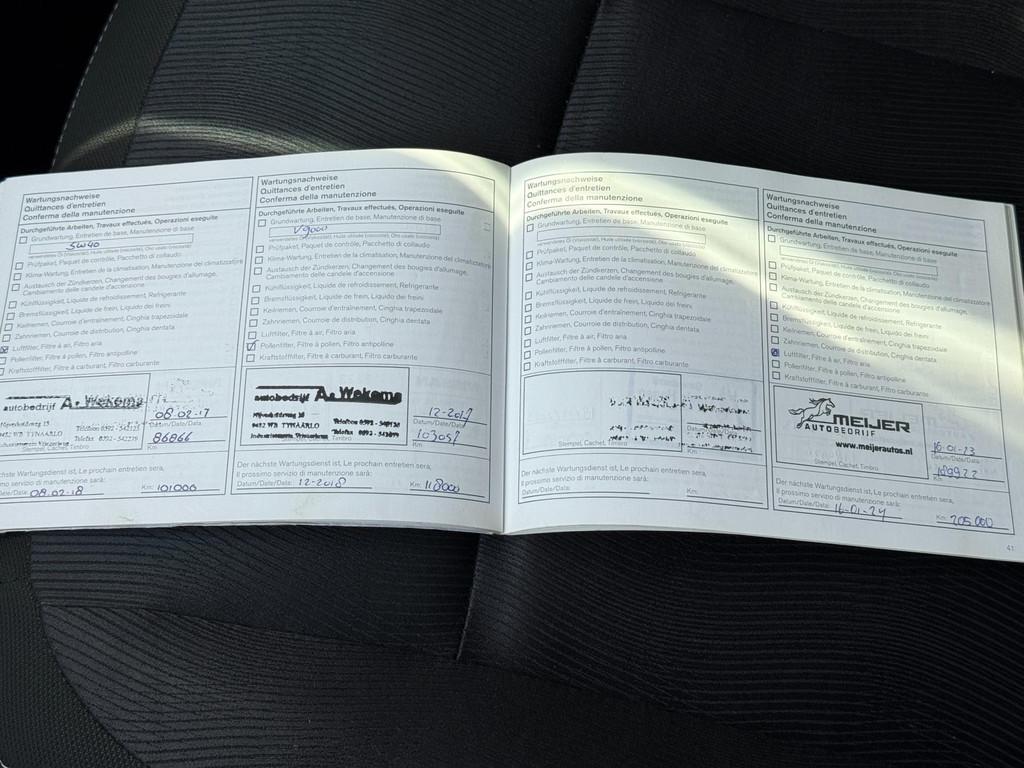 Wartungsnachweise
Quittances d'entretien
Conferma della manutenzione
Durchgeführte Arbeiten, Travaux effectués, Operazioni eseguite
Grundwartung, Entretien de base, Manutenzione di base
5W40
verwendetes Öl (Viskosität), Huile utilisée (viscosité), Olio usato (viscosità)
Prüfpaket, Paquet de contrôle, Pacchetto di collaudo
Klima-Wartung, Entretien de la climatisation, Manutenzione del climatizzatore
Austausch der Zündkerzen, Changement des bougies d'allumage,
Cambiamento delle candele d'accensione
Kühlflüssigkeit, Liquide de refroidissement, Refrigerante
Bremsflüssigkeit, Liquide de frein, Liquido dei freini
Keilriemen, Courroie d'entraînement, Cinghia trapezoidale
Zahnriemen, Courroie de distribution, Cinghia dentata
Luftfilter, Filtre à air, Filtro aria
Pollenfilter, Filtre à pollen, Filtro antipolline
Kraftstofffilter, Filtre à carburant, Filtro carburante
autobedrijf A. Wekema
9482 WB TYNAARLO
Stempel, Cachet, Timbro
08-02-17
Datum/Date/Data
86866
Km
Der nächste Wartungsdienst ist, Le prochain entretien sera,
Il prossimo servizio di manutenzione sarà:
Datum/Date/Data: 08-02-18 Km: 101000
Wartungsnachweise
Quittances d'entretien
Conferma della manutenzione
Durchgeführte Arbeiten, Travaux effectués, Operazioni eseguite
Grundwartung, Entretien de base, Manutenzione di base
verwendetes Öl (Viskosität), Huile utilisée (viscosité), Olio usato (viscosità)
Prüfpaket, Paquet de contrôle, Pacchetto di collaudo
Klima-Wartung, Entretien de la climatisation, Manutenzione del climatizzatore
Austausch der Zündkerzen, Changement des bougies d'allumage,
Cambiamento delle candele d'accensione
Kühlflüssigkeit, Liquide de refroidissement, Refrigerante
Bremsflüssigkeit, Liquide de frein, Liquido dei freini
Keilriemen, Courroie d'entraînement, Cinghia trapezoidale
Zahnriemen, Courroie de distribution, Cinghia dentata
Luftfilter, Filtre à air, Filtro aria
Pollenfilter, Filtre à pollen, Filtro antipolline
Kraftstofffilter, Filtre à carburant, Filtro carburante
autobedrijf A. Wekema
9482 WB TYNAARLO
Timbro
12-2017
Datum/Date/Data
103057
Km
Der nächste Wartungsdienst ist, Le prochain entretien sera,
Il prossimo servizio di manutenzione sarà:
Datum/Date/Data: 12-2018 Km: 118000
Wartungsnachweise
Quittances d'entretien
Conferma della manutenzione
Durchgeführte Arbeiten, Travaux effectués, Operazioni eseguite
Grundwartung, Entretien de base, Manutenzione di base
verwendetes Öl (Viskosität), Huile utilisée (viscosité), Olio usato (viscosità)
Prüfpaket, Paquet de contrôle, Pacchetto di collaudo
Klima-Wartung, Entretien de la climatisation, Manutenzione del climatizzatore
Austausch der Zündkerzen, Changement des bougies d'allumage,
Cambiamento delle candele d'accensione
Kühlflüssigkeit, Liquide de refroidissement, Refrigerante
Bremsflüssigkeit, Liquide de frein, Liquido dei freini
Keilriemen, Courroie d'entraînement, Cinghia trapezoidale
Zahnriemen, Courroie de distribution, Cinghia dentata
Luftfilter, Filtre à air, Filtro aria
Pollenfilter, Filtre à pollen, Filtro antipolline
Kraftstofffilter, Filtre à carburant, Filtro carburante
Stempel, Cachet, Timbro
Km
Der nächste Wartungsdienst ist, Le prochain entretien sera,
Il prossimo servizio di manutenzione sarà:
Datum/Date/Data: Km:
Wartungsnachweise
Quittances d'entretien
Conferma della manutenzione
Durchgeführte Arbeiten, Travaux effectués, Operazioni eseguite
Grundwartung, Entretien de base, Manutenzione di base
verwendetes Öl (Viskosität), Huile utilisée (viscosité), Olio usato (viscosità)
Prüfpaket, Paquet de contrôle, Pacchetto di collaudo
Klima-Wartung, Entretien de la climatisation, Manutenzione del climatizzatore
Austausch der Zündkerzen, Changement des bougies d'allumage,
Cambiamento delle candele d'accensione
Kühlflüssigkeit, Liquide de refroidissement, Refrigerante
Bremsflüssigkeit, Liquide de frein, Liquido dei freini
Keilriemen, Courroie d'entraînement, Cinghia trapezoidale
Zahnriemen, Courroie de distribution, Cinghia dentata
Luftfilter, Filtre à air, Filtro aria
Pollenfilter, Filtre à pollen, Filtro antipolline
Kraftstofffilter, Filtre à carburant, Filtro carburante
MEIJER
AUTOBEDRIJF
www.meijerautos.nl
Stempel, Cachet, Timbro
16-01-23
Datum/Date/Data
189922
Km
Der nächste Wartungsdienst ist, Le prochain entretien sera,
Il prossimo servizio di manutenzione sarà:
Datum/Date/Data: 16-01-24 Km: 205000
41